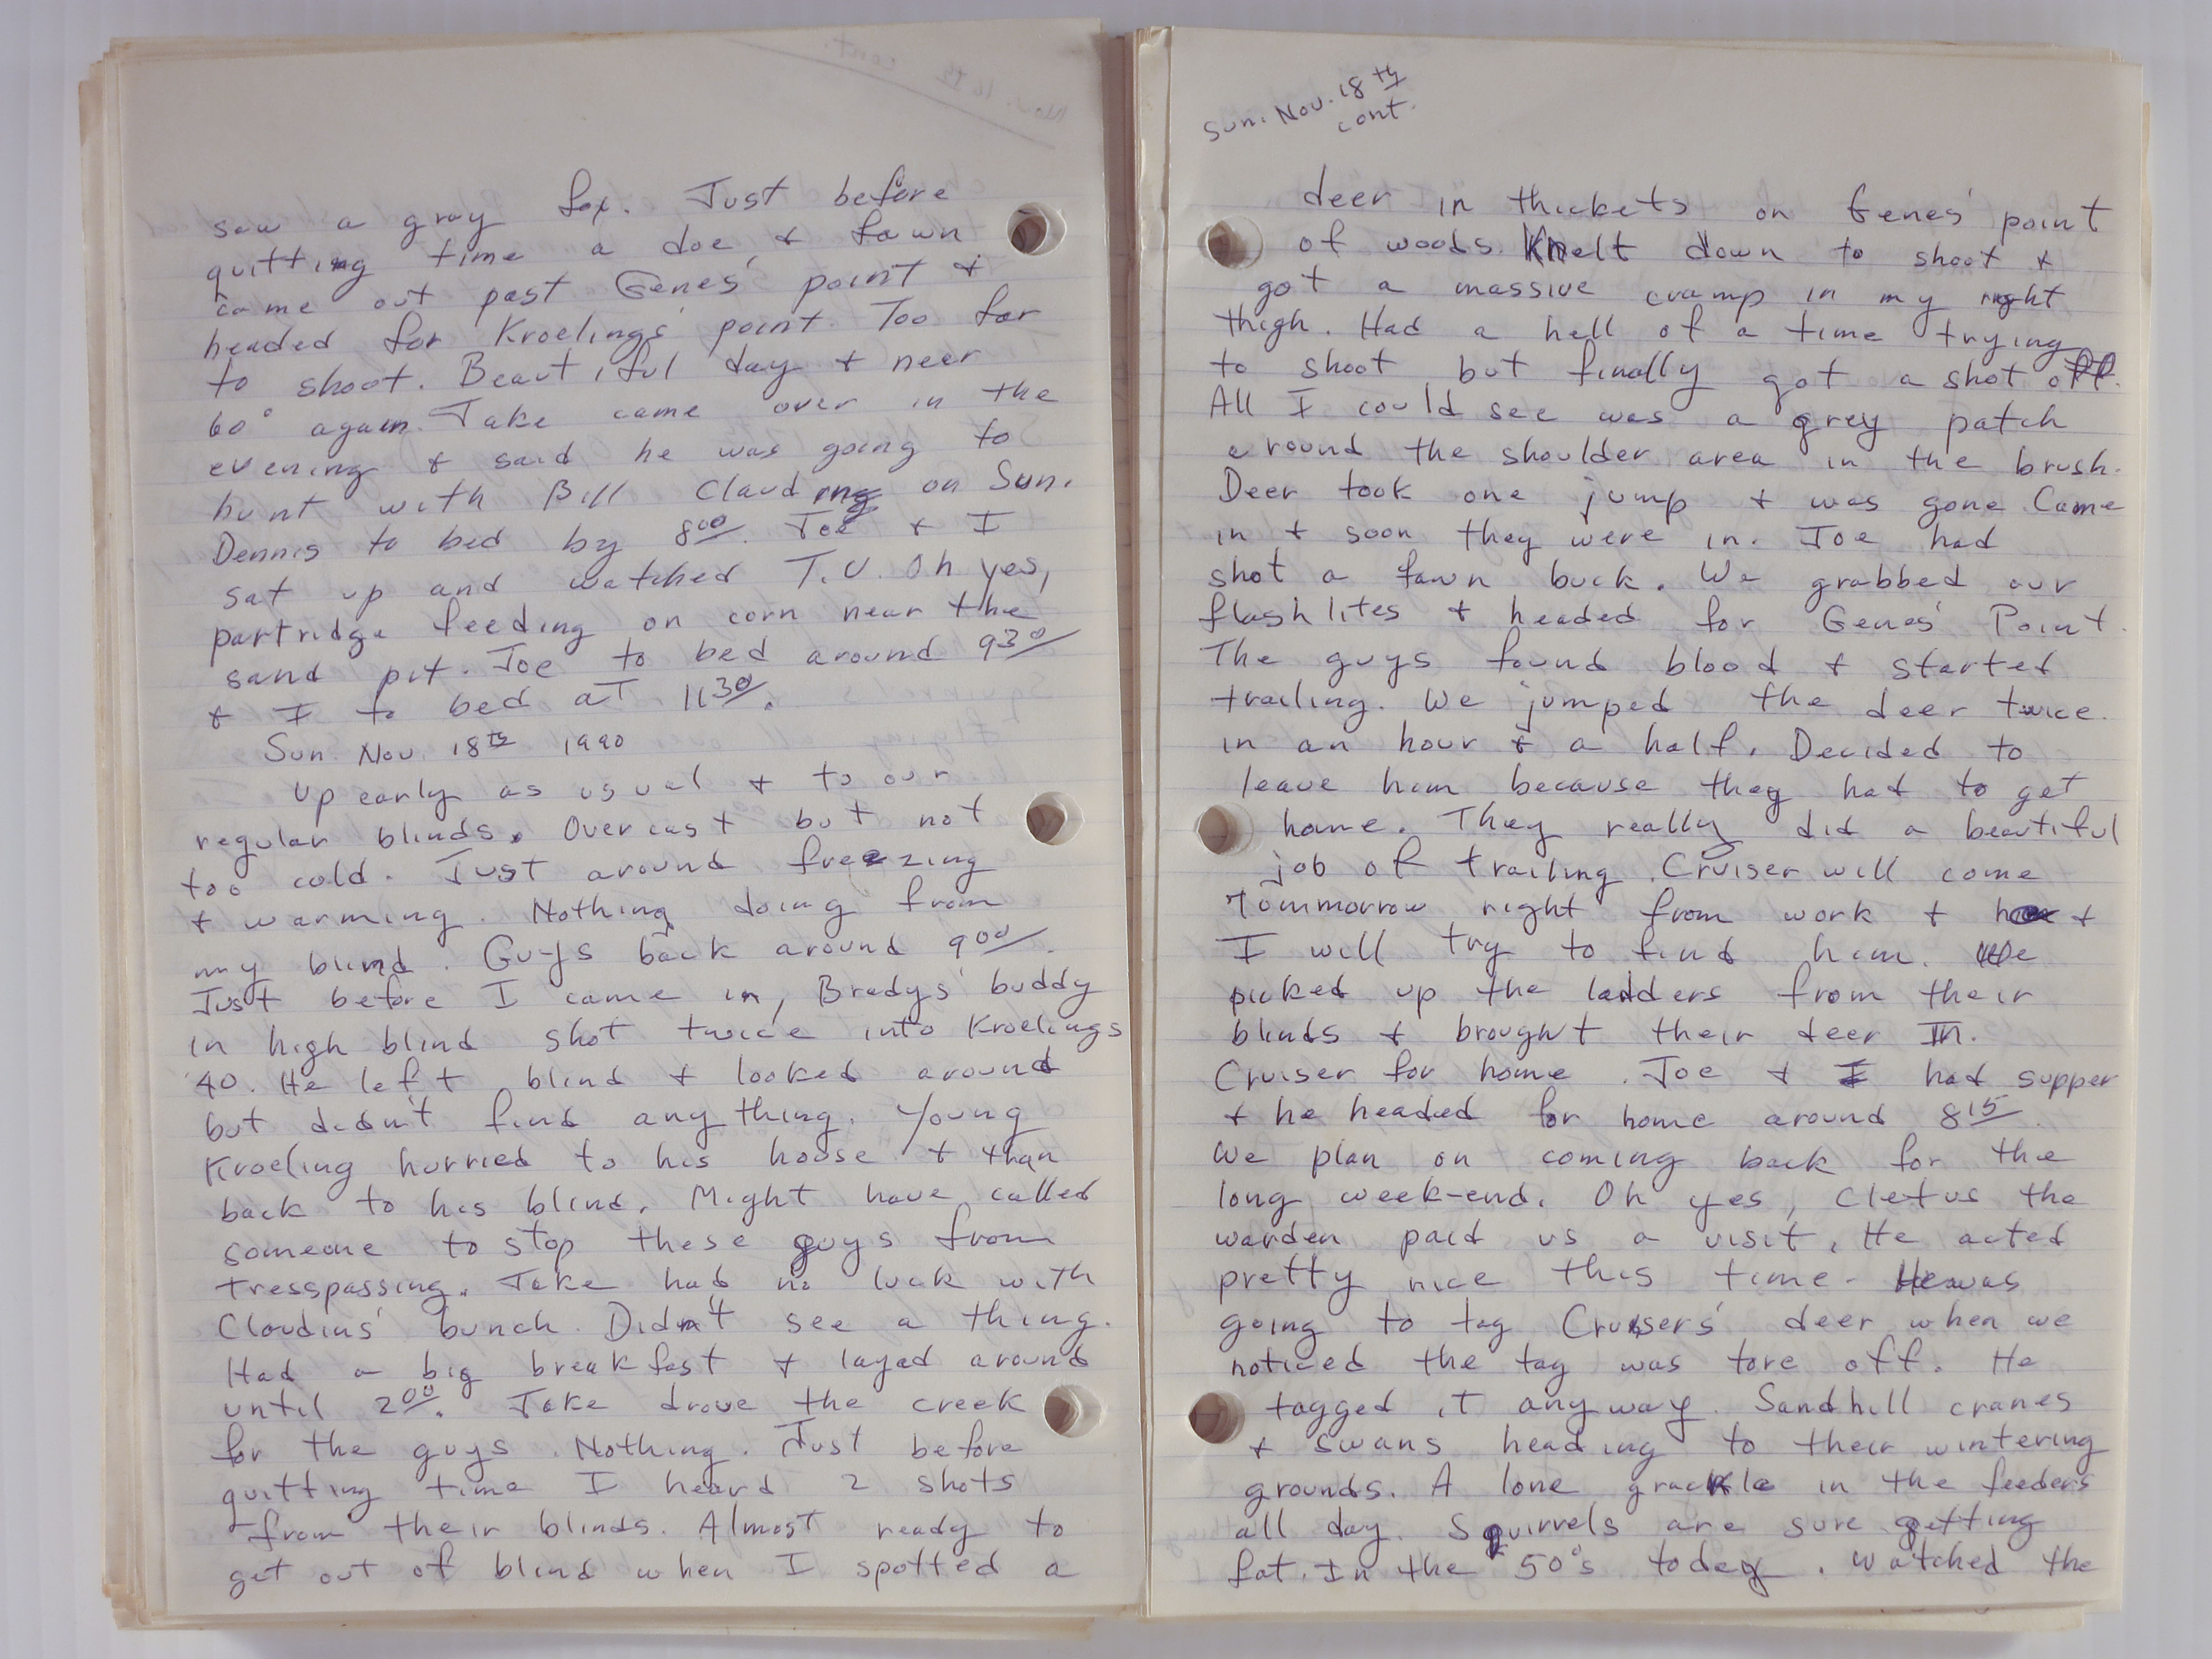 saw a gray fox. Just before
quitting time a doe & fawn
came out past Genes' point &
headed for Kroelings' point. Too far
to shoot. Beautiful day & near
60° again. Jake came over in the
evening & said he was going to
hunt with Bill Clauding on Sun.
Dennis to bed by 8 00. Joe & I
sat up and watched T.V. Oh yes,
partridge feeding on corn near the
sand pit. Joe to bed around 9 30
& I to bed at 11 30.
Sun. Nov. 18th 1990
Up early as usual & to our
regular blinds. Overcast but not
too cold. Just around freezing
& warming. Nothing doing from
my blind. Guys back around 9 00.
Just before I came in, Bradys' buddy
in high blind shot twice into Kroelings
40. He left blind & looked around
but didn't find anything. Young
Kroeling hurried to his house & than
back to his blind. Might have called
someone to stop these guys from
tresspassing. Jake had no luck with
Claudins' bunch. Didn't see a thing.
Had a big breakfast & layed around
until 2 00. Jake drove the creek
for the guys. Nothing. Just before
quitting time I heard 2 shots
from their blinds. Almost ready to
get out of blind when I spotted a
Sun. Nov. 18th
cont.
deer in thickets on Genes' point
of woods. Knelt down to shoot &
got a massive cramp in my right
thigh. Had a hell of a time trying
to shoot but finally got a shot off.
All I could see was a grey patch
around the shoulder area in the brush.
Deer took one jump & was gone. Came
in & soon they were in. Joe had
shot a fawn buck. We grabbed our
flashlites & headed for Genes' Point.
The guys found blood & started
trailing. We jumped the deer twice
in an hour & a half. Decided to
leave him because they had to get
home. They really did a beautiful
job of trailing. Cruiser will come
Tommorrow right from work & &
I will try to find him. We
picked up the ladders from their
blinds & brought their deer in.
Cruiser for home. Joe & I had supper
& he headed for home around 8 15.
We plan on coming back for the
long week-end. Oh yes, Cletus the
warden paid us a visit. He acted
pretty nice this time. He was
going to tag Cruisers' deer when we
noticed the tag was tore off. He
tagged it anyway. Sandhill cranes
& swans heading to their wintering
grounds. A lone grackle in the feeders
all day. Squirrels are sure getting
fat. In the 50°s today. Watched the